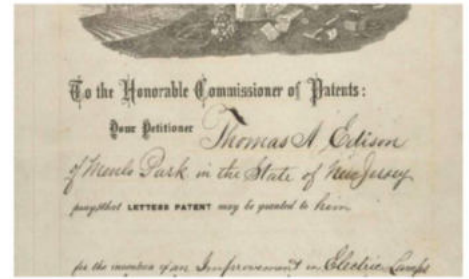 To the Honorable Commissioner of Patents:
Your Petitioner Thomas A. Edison
of Menlo Park in the State of New Jersey
prays that LETTERS PATENT may be granted to him
for the invention of an Improvement in Electric Lamps